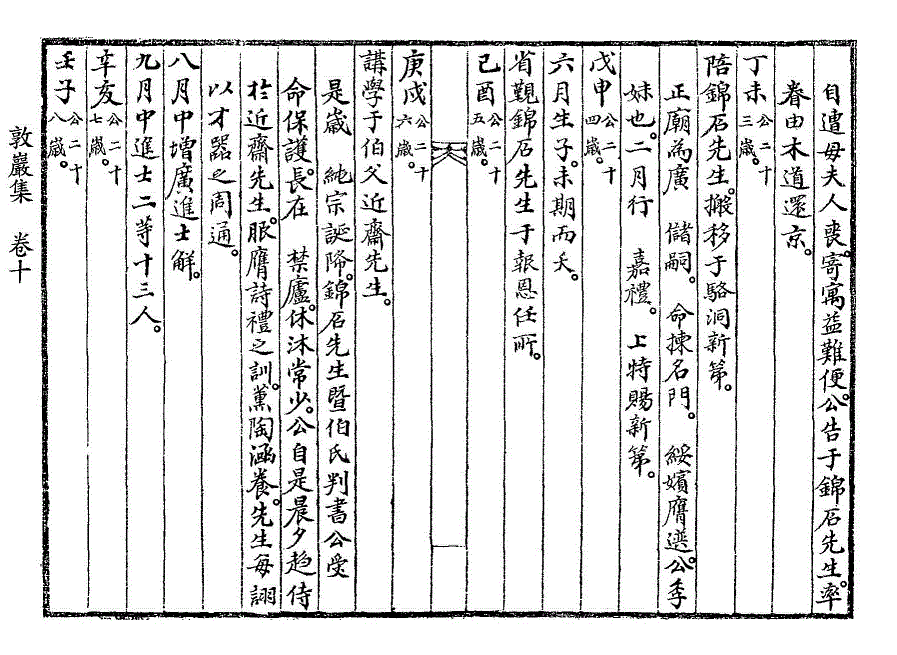 自遭母夫人喪。寄寓益難便。公告于錦石先生。率
眷由木道還京。
丁未公二十三歲。
陪錦石先生。搬移于駱洞新第。
正廟為廣 儲嗣。 命揀名門。 綏嬪膺選。公季
妹也。二月行 嘉禮。 上特賜新第。
戊申公二十四歲。
六月生子。未期而夭。
省覲錦石先生于報恩任所。
己酉公二十五歲。
庚戌公二十六歲。
講學于伯父近齋先生。
是歲 純宗誕降。錦石先生曁伯氏判書公受
命保護。長在 禁廬。休沐常少。公自是晨夕趍侍
於近齋先生。服膺詩禮之訓。薰陶涵養。先生每詡
以才器之周通。
八月中增廣進士解。
九月中進士二等十三人。
辛亥公二十七歲。
壬子公二十八歲。
敦巖集 卷十